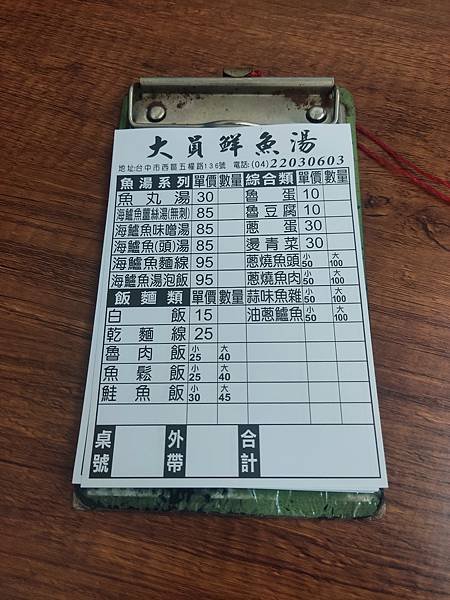 大員鮮魚湯
地址:台中市西區五權路136號 電話:(04)22030603
魚湯系列 單價 數量 綜合類 單價 數量
魚丸湯 30 魯蛋 10
海鱸魚薑絲湯(無刺) 85 魯豆腐 10
海鱸魚味噌湯 85 蔥蛋 30
海鱸魚(頭)湯 85 燙青菜 30
海鱸魚麵線 95 蔥燒魚頭 小50 大100
海鱸魚湯泡飯 95 蔥燒魚肉 小50 大100
飯麵類 單價 數量 蒜味魚雜 小50 大100
白飯 15 油蔥鱸魚 小50 大100
乾麵線 25
魯肉飯 小25 大40
魚鬆飯 小25 大40
鮭魚飯 小30 大45
桌號 外帶 合計